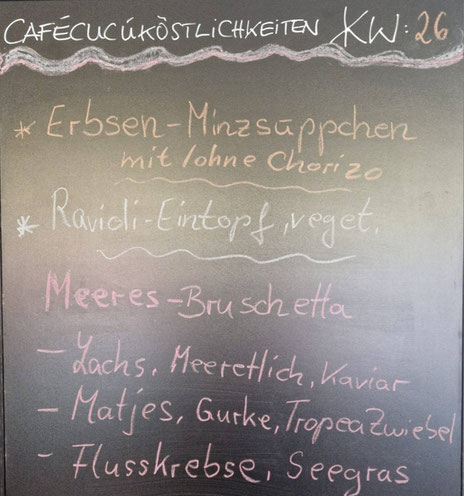 CAFÉCUCÚKÖSTLICHKEITEN KW: 26
* Erbsen-Minzsüppchen
mit/ohne Chorizo
* Ravioli-Eintopf, veget.
Meeres-Bruschetta
- Lachs, Meeretlich, Kaviar
- Matjes, Gurke, TropeaZwiebel
- Flusskrebse, Seegras